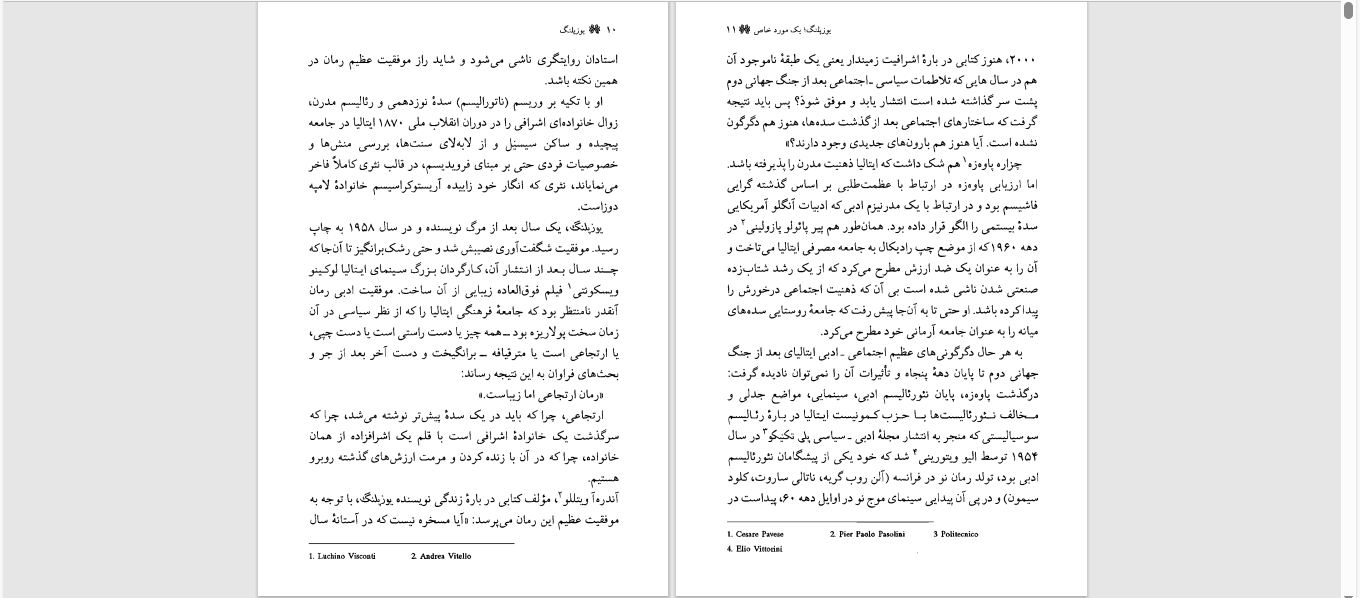 ۱۰ یوزپلنگ
استادان روایتگری ناشی می‌شود و شاید راز موفقیت عظیم رمان در
همین نکته باشد.
او با تکیه بر وریسم (ناتورالیسم) سدهٔ نوزدهمی و رئالیسم مدرن،
زوال خانواده‌ای اشرافی را در دوران انقلاب ملی ۱۸۷۰ ایتالیا در جامعه
پیچیده و ساکن سیسیل و از لابه‌لای سنت‌ها، بررسی منش‌ها و
خصوصیات فردی حتی بر مبنای فرویدیسم، در قالب نثری کاملاً فاخر
می‌نمایاند، نثری که انگار خود زاییده آریستوکراسیسم خانوادهٔ لامپه
دوزاست.
یوزپلنگ، یک سال بعد از مرگ نویسنده و در سال ۱۹۵۸ به چاپ
رسید. موفقیت شگفت‌آوری نصیبش شد و حتی رشک‌برانگیز تا آن‌جا که
چند سال بعد از انتشار آن، کارگردان بزرگ سینمای ایتالیا لوکینو
ویسکونتی۱ فیلم فوق‌العاده زیبایی از آن ساخت. موفقیت ادبی رمان
آنقدر نامنتظر بود که جامعهٔ فرهنگی ایتالیا را که از نظر سیاسی در آن
زمان سخت پولاریزه بود ــ همه چیز یا دست راستی است یا دست چپی،
یا ارتجاعی است یا مترقیافه ــ برانگیخت و دست آخر بعد از جر و
بحث‌های فراوان به این نتیجه رساند:
«رمان ارتجاعی اما زیباست.»
ارتجاعی، چرا که باید در یک سدهٔ پیش‌تر نوشته می‌شد، چرا که
سرگذشت یک خانوادهٔ اشرافی است با قلم یک اشراف‌زاده از همان
خانواده، چرا که در آن با زنده کردن و مرمت ارزش‌های گذشته روبرو
هستیم.
آندره‌آ ویتللو۲، مؤلف کتابی در بارهٔ زندگی نویسنده یوزپلنگ، با توجه به
موفقیت عظیم این رمان می‌پرسد: «آیا مسخره نیست که در آستانهٔ سال
1. Luchino Visconti 2. Andrea Vitello
یوزپلنگ؛ یک مورد خاص ۱۱
۲۰۰۰، هنوز کتابی در بارهٔ اشرافیت زمیندار یعنی یک طبقهٔ ناموجود آن
هم در سال هایی که تلاطمات سیاسی ـ اجتماعی بعد از جنگ جهانی دوم
پشت سر گذاشته شده است انتشار یابد و موفق شود؟ پس باید نتیجه
گرفت که ساختارهای اجتماعی بعد از گذشت سده‌ها، هنوز هم دگرگون
نشده است. آیا هنوز هم بارون‌های جدیدی وجود دارند؟»
چزاره پاوه‌زه۱ هم شک داشت که ایتالیا ذهنیت مدرن را پذیرفته باشد.
اما ارزیابی پاوه‌زه در ارتباط با عظمت‌طلبی بر اساس گذشته گرایی
فاشیسم بود و در ارتباط با یک مدرنیزم ادبی که ادبیات آنگلو آمریکایی
سدهٔ بیستمی را الگو قرار داده بود. همان‌طور هم پیر پائولو پازولینی۲ در
دهه ۱۹۶۰ که از موضع چپ رادیکال به جامعه مصرفی ایتالیا می‌تاخت و
آن را به عنوان یک ضد ارزش مطرح می‌کرد که از یک رشد شتاب‌زده
صنعتی شدن ناشی شده است بی آن که ذهنیت اجتماعی درخورش را
پیدا کرده باشد. او حتی تا به آن‌جا پیش رفت که جامعهٔ روستایی سده‌های
میانه را به عنوان جامعه آرمانی خود مطرح می‌کرد.
به هر حال دگرگونی‌های عظیم اجتماعی ـ ادبی ایتالیای بعد از جنگ
جهانی دوم تا پایان دههٔ پنجاه و تأثیرات آن را نمی‌توان نادیده گرفت:
درگذشت پاوه‌زه، پایان نئورئالیسم ادبی، سینمایی، مواضع جدلی و
مخالف نئورئالیست‌ها با حزب کمونیست ایتالیا در بارهٔ رئالیسم
سوسیالیستی که منجر به انتشار مجلهٔ ادبی ـ سیاسی پلی تکنیکو۳ در سال
۱۹۵۴ توسط الیو ویتورینی۴ شد که خود یکی از پیشگامان نئورئالیسم
ادبی بود، تولد رمان نو در فرانسه (آلن روب گریه، ناتالی ساروت، کلود
سیمون) و در پی آن پیدایی سینمای موج نو در اوایل دهه ۶۰، پیداست در
1. Cesare Pavese 2. Pier Paolo Pasolini 3 Politecnico
4. Elio Vittorini